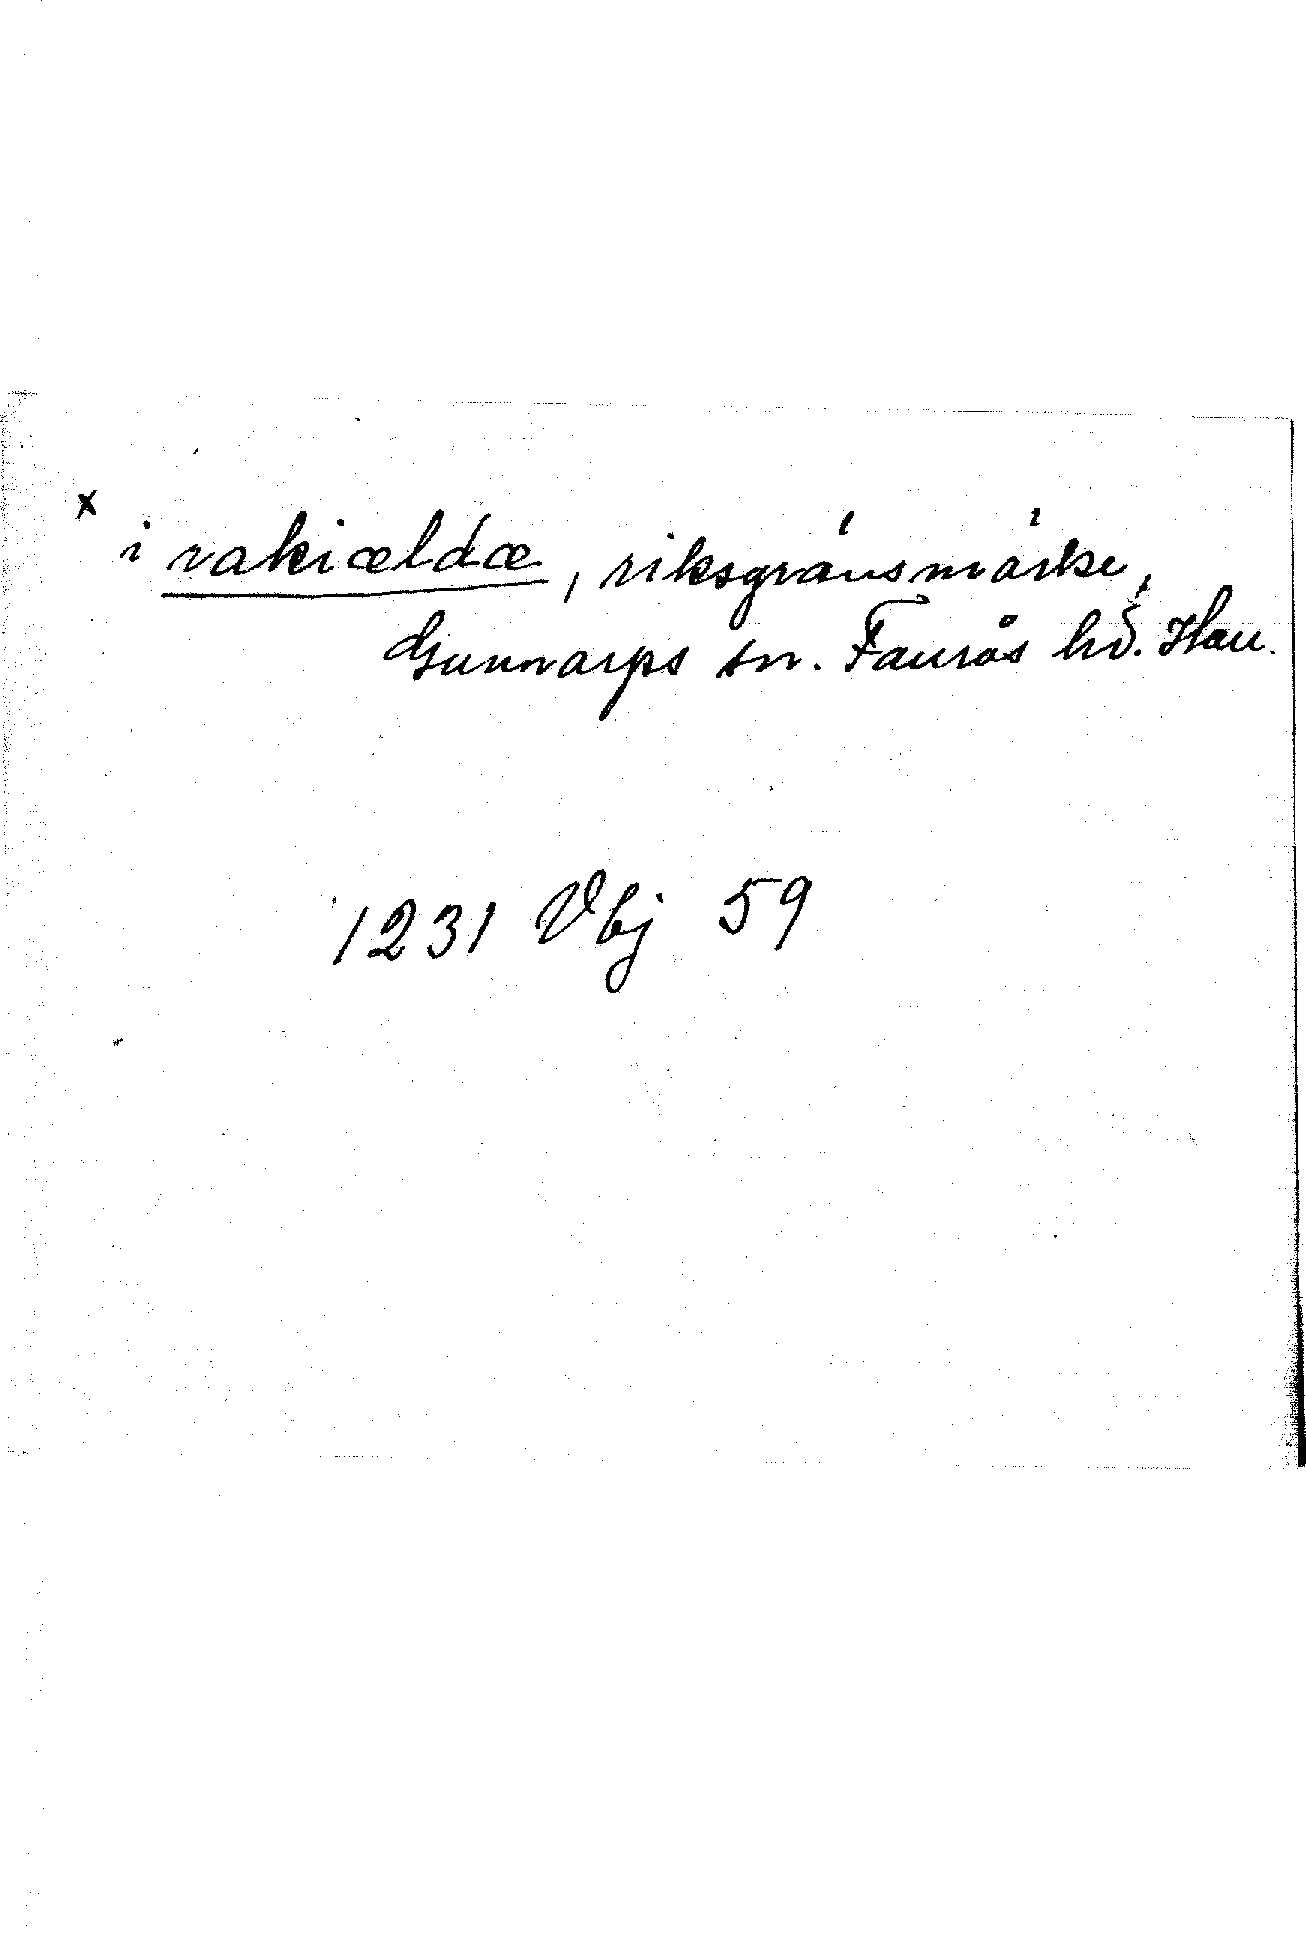 x
i rakiældæ, riksgränsmärke,
Gunnarps sn. Faurås hd. Hall.
1231 Vbj 59